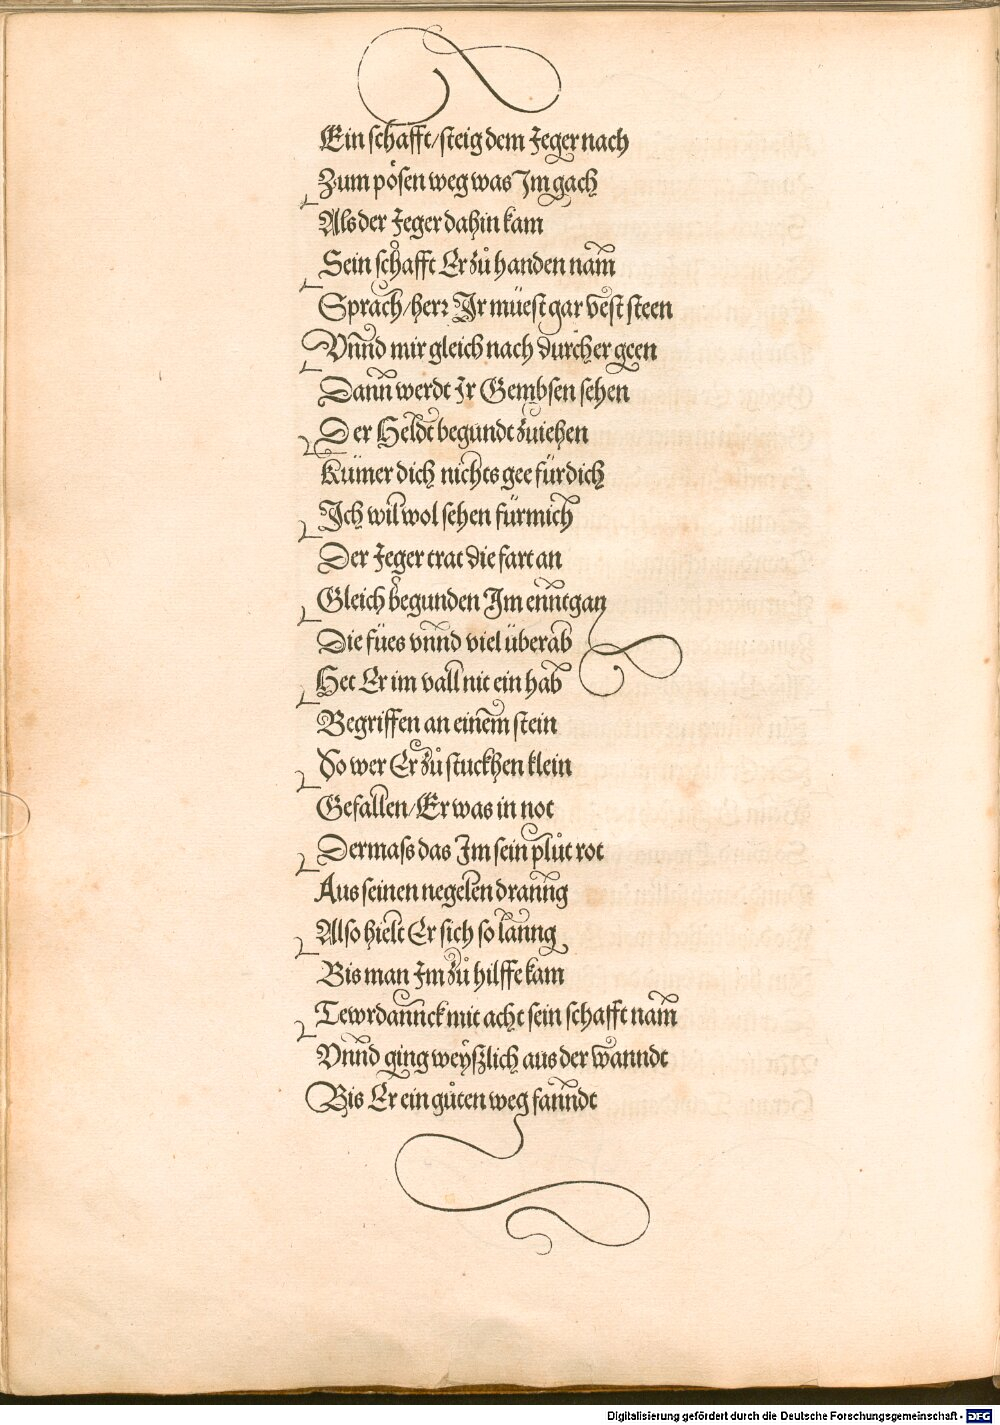 Ein schafft/steig dem Jeger nach
Zum pösen weg was Im gach
Als der Jeger dahin kam
Sein schafft Er zů handen nam
Sprach/herr Ir müest gar vest steen
Vnnd mir gleich nach durcher geen
Dann werdt Ir Gembsen sehen
Der Heldt begundt zuiehen
Kümer dich nichts gee für dich
Ich wil wol sehen für mich
Der Jeger trat die fart an
Gleich begunden Im enntgan
Die fües vnnd viel überab
Het Er im vall nit ein hab
Begriffen an einem stein
So wer Er zů stuckhen klein
Gefallen/Er was in not
Dermass das Im sein plůt rot
Aus seinen negelen dranng
Also hielt Er sich so lanng
Bis man Im zů hilffe kam
Tewrdannck mit acht sein schafft nam
Vnnd ging weyszlich aus der wanndt
Bis Er ein gůten weg fanndt
Digitalisierung gefördert durch die Deutsche Forschungsgemeinschaft - DFG